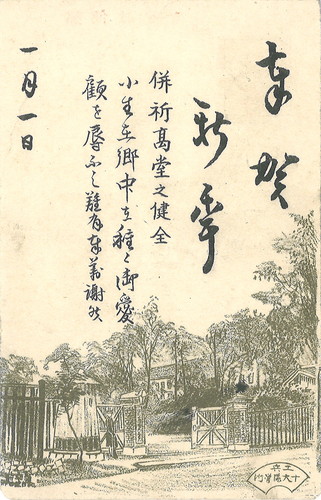 奉賀
新年
併祈高堂之健全
小生在郷中は種々御愛
顧を辱ふし難有奉萬謝候
一月一日
工兵
十大隊営門